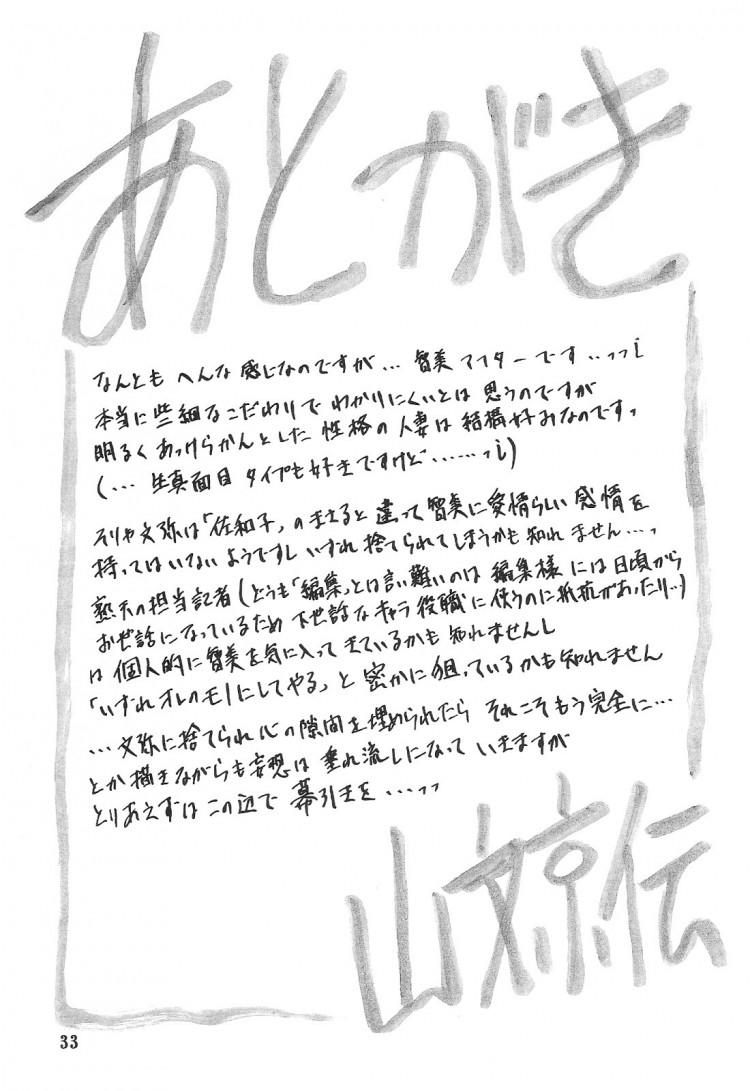 あとがき
なんとも へんな 感じなのですが… 智美 アフターです…っっ¡
本当に些細なこだわりで わかりにくいとは 思うのですが
明るく あっけらかんとした 性格の 人妻は 結構好みなのですっ
(… 生真面目 タイプも好きですけど……っ¡)
そりゃ文弥は「佐和子」の まさると 違って 智美に愛情らしい 感情を
持ってはいないようですし いずれ 捨てられてしまうかも知れ ません…っ
熟天の担当記者(どうも「編集」とは言い難いのは 編集様 には 日頃から
お世話になっているため 下世話な キャラ 役職に 使うのに抵抗があったり…)
は 個人的に 智美を気に入って きているかも 知れませんし
「いずれオレのモノにしてやる」と 密かに 狙っているかも知れません
… 文弥に捨てられ 心の 隙間を埋められたら それこそもう完全に…
とか描きながらも妄想は 垂れ流しになって いきますが
とりあえずは この辺で 幕引きを …っっ
山文京伝
33